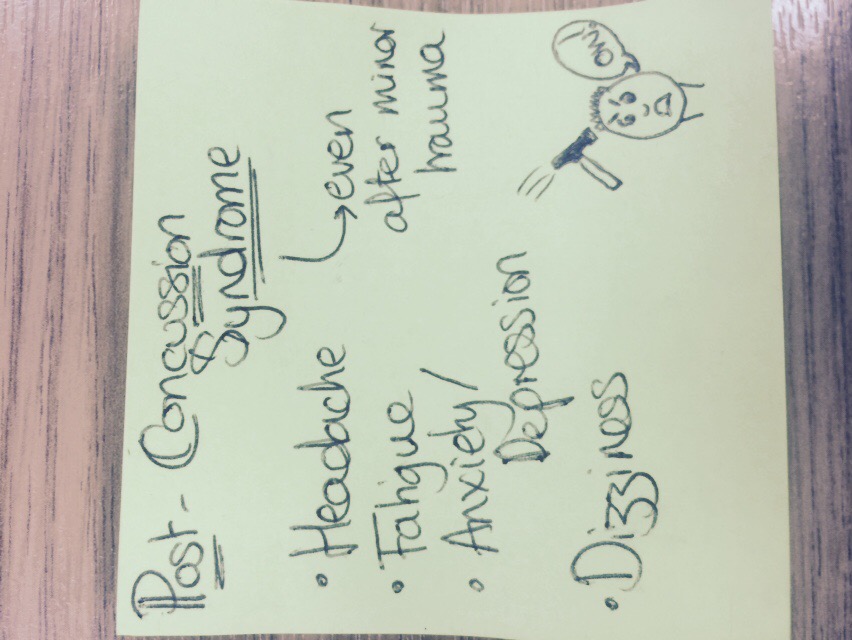 Post-Concussion
Syndrome
even
after minor
trauma
• Headache
• Fatigue
• Anxiety/
Depression
• Dizziness
OW!